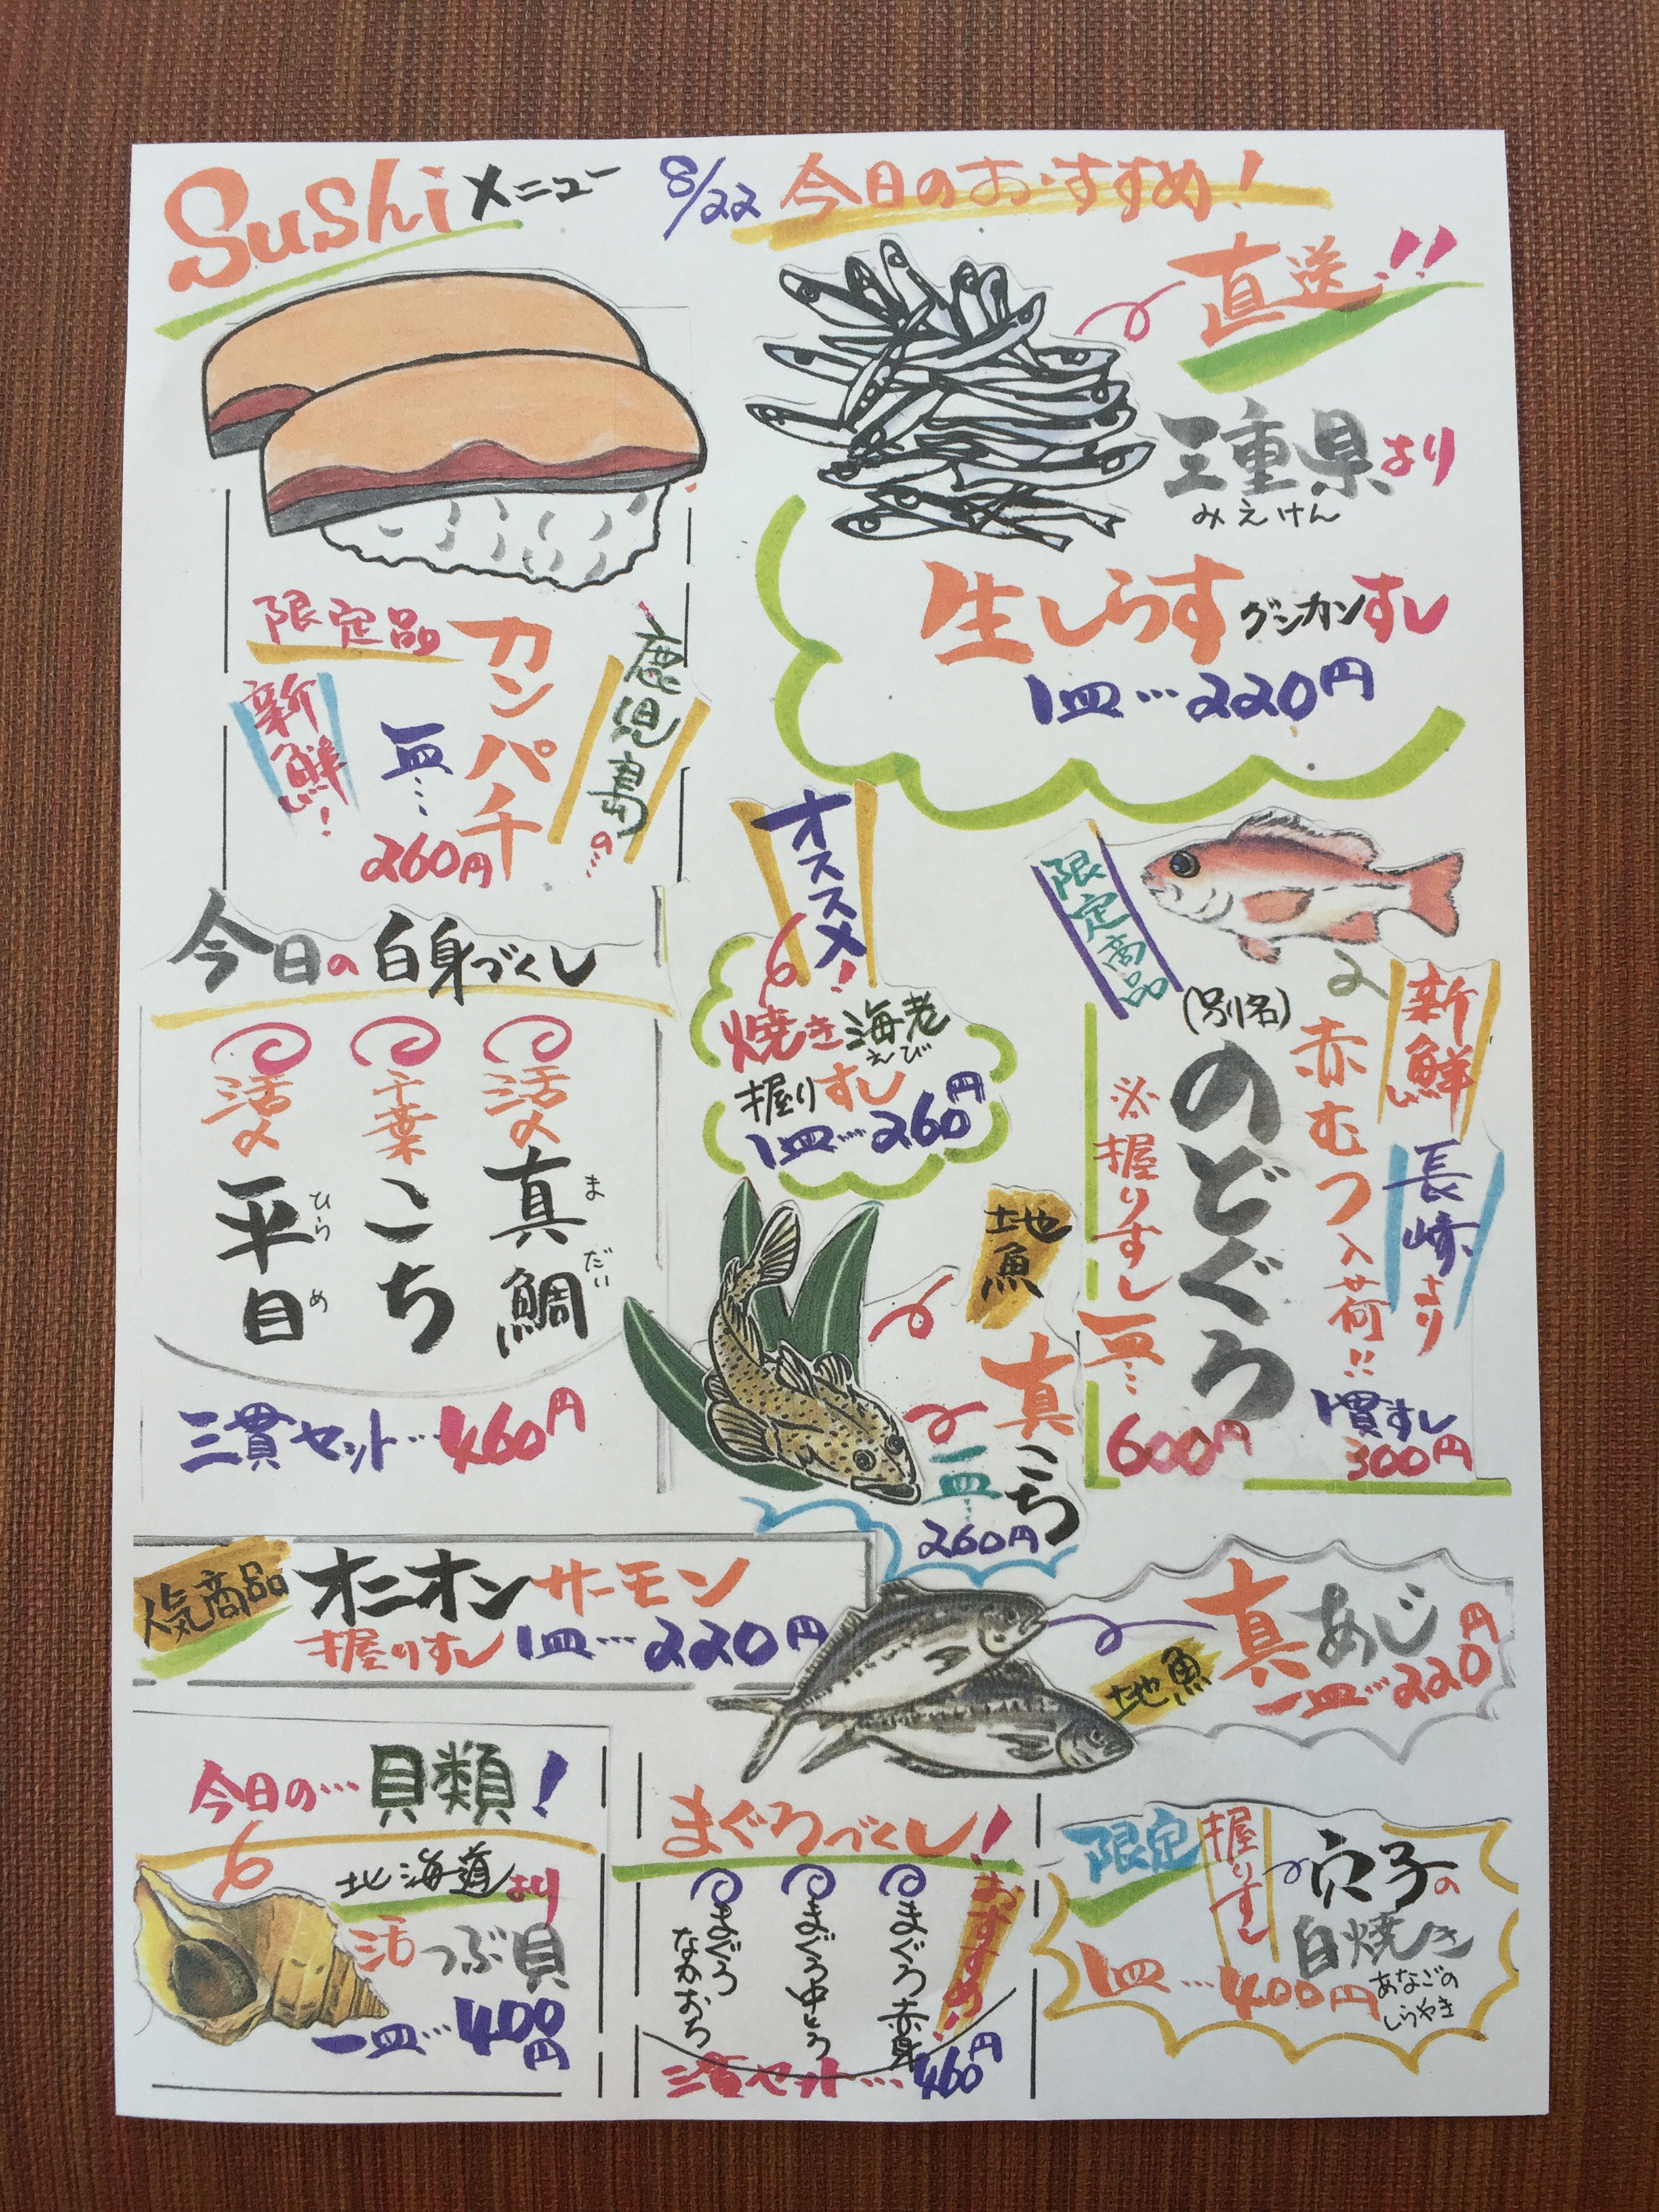 Sushiメニュー
8/22 今日のおすすめ!
直送!!
三重県より
みえけん
生しらすグンカンすし
1皿…220円
限定品
鹿児島の…
カンパチ
一皿…
260円
新鮮!
今日の白身づくし
活〆真鯛
まだい
千葉こち
活〆平目
ひらめ
三貫セット…460円
オススメ!
焼き海老
えび
握りすし
1皿…260円
限定商品
新鮮
長崎より
赤むつ入荷!!
(別名)
のどぐろ
※握りすし一皿…
600円
1貫すし
300円
地魚
真こち
一皿…
260円
人気商品
オニオンサーモン
握りすし 1皿…220円
真あじ
地魚
一皿…220円
今日の…貝類!
北海道より
活つぶ貝
一皿…400円
まぐろづくし!
おすすめ!
まぐろ赤身
まぐろ中とろ
まぐろなかおち
三貫セット…460円
限定
握りすし
穴子の
白焼き
あなごの
しらやき
1皿…400円